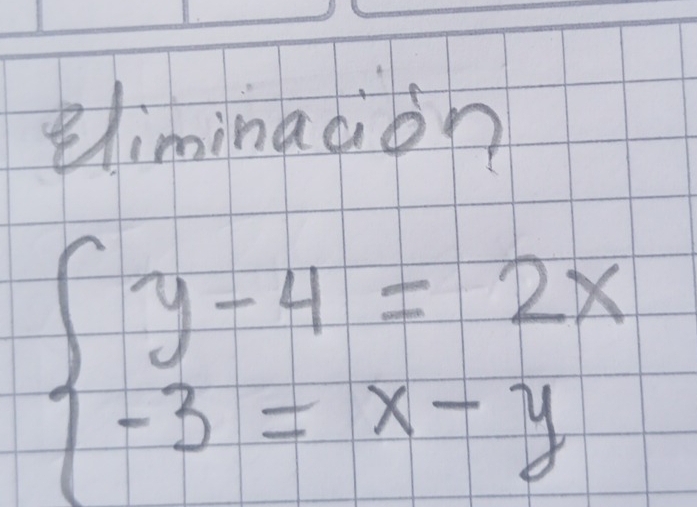 Eliminación
y - 4 = 2x
-3 = x - y